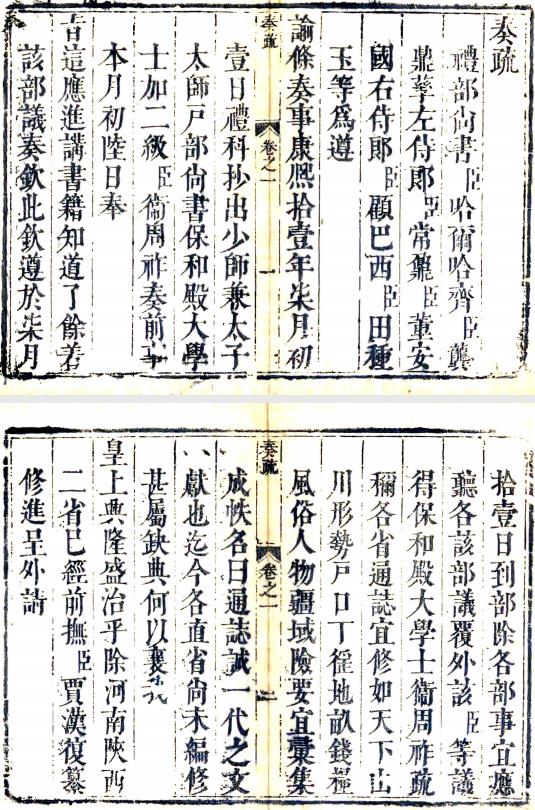 奏疏
禮部尚書臣哈爾哈齊臣龔
鼎孳左侍郎臣常鼐臣董安
國右侍郎臣顧巴西臣田種
玉等爲遵
諭條奏事康熙拾壹年柒月初
奏疏 卷之一 一
壹日禮科抄出少師兼太子
太師戸部尚書保和殿大學
士加二級臣衞周祚奏前事
本月初陸日奉
旨這應進講書籍知道了餘着
該部議奏欽此欽遵於柒月
拾壹日到部除各部事宜應
聽各該部議覆外該臣等議
得保和殿大學士衞周祚疏
稱各省通誌宜修如天下山
川形勢戸口丁徭地畝錢糧
風俗人物疆域險要宜彙集
奏疏 卷之一 二
成帙名曰通誌誠一代之文
獻也迄今各直省尚未編修
甚屬缺典何以襄我
皇上興隆盛治乎除河南陜西
二省已經前撫臣賈漢復纂
修進呈外請